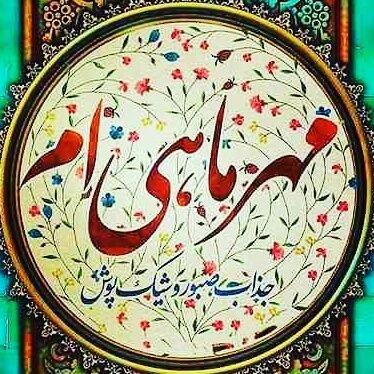 مهر ماهی ام
جذاب صبور و شیک پوش